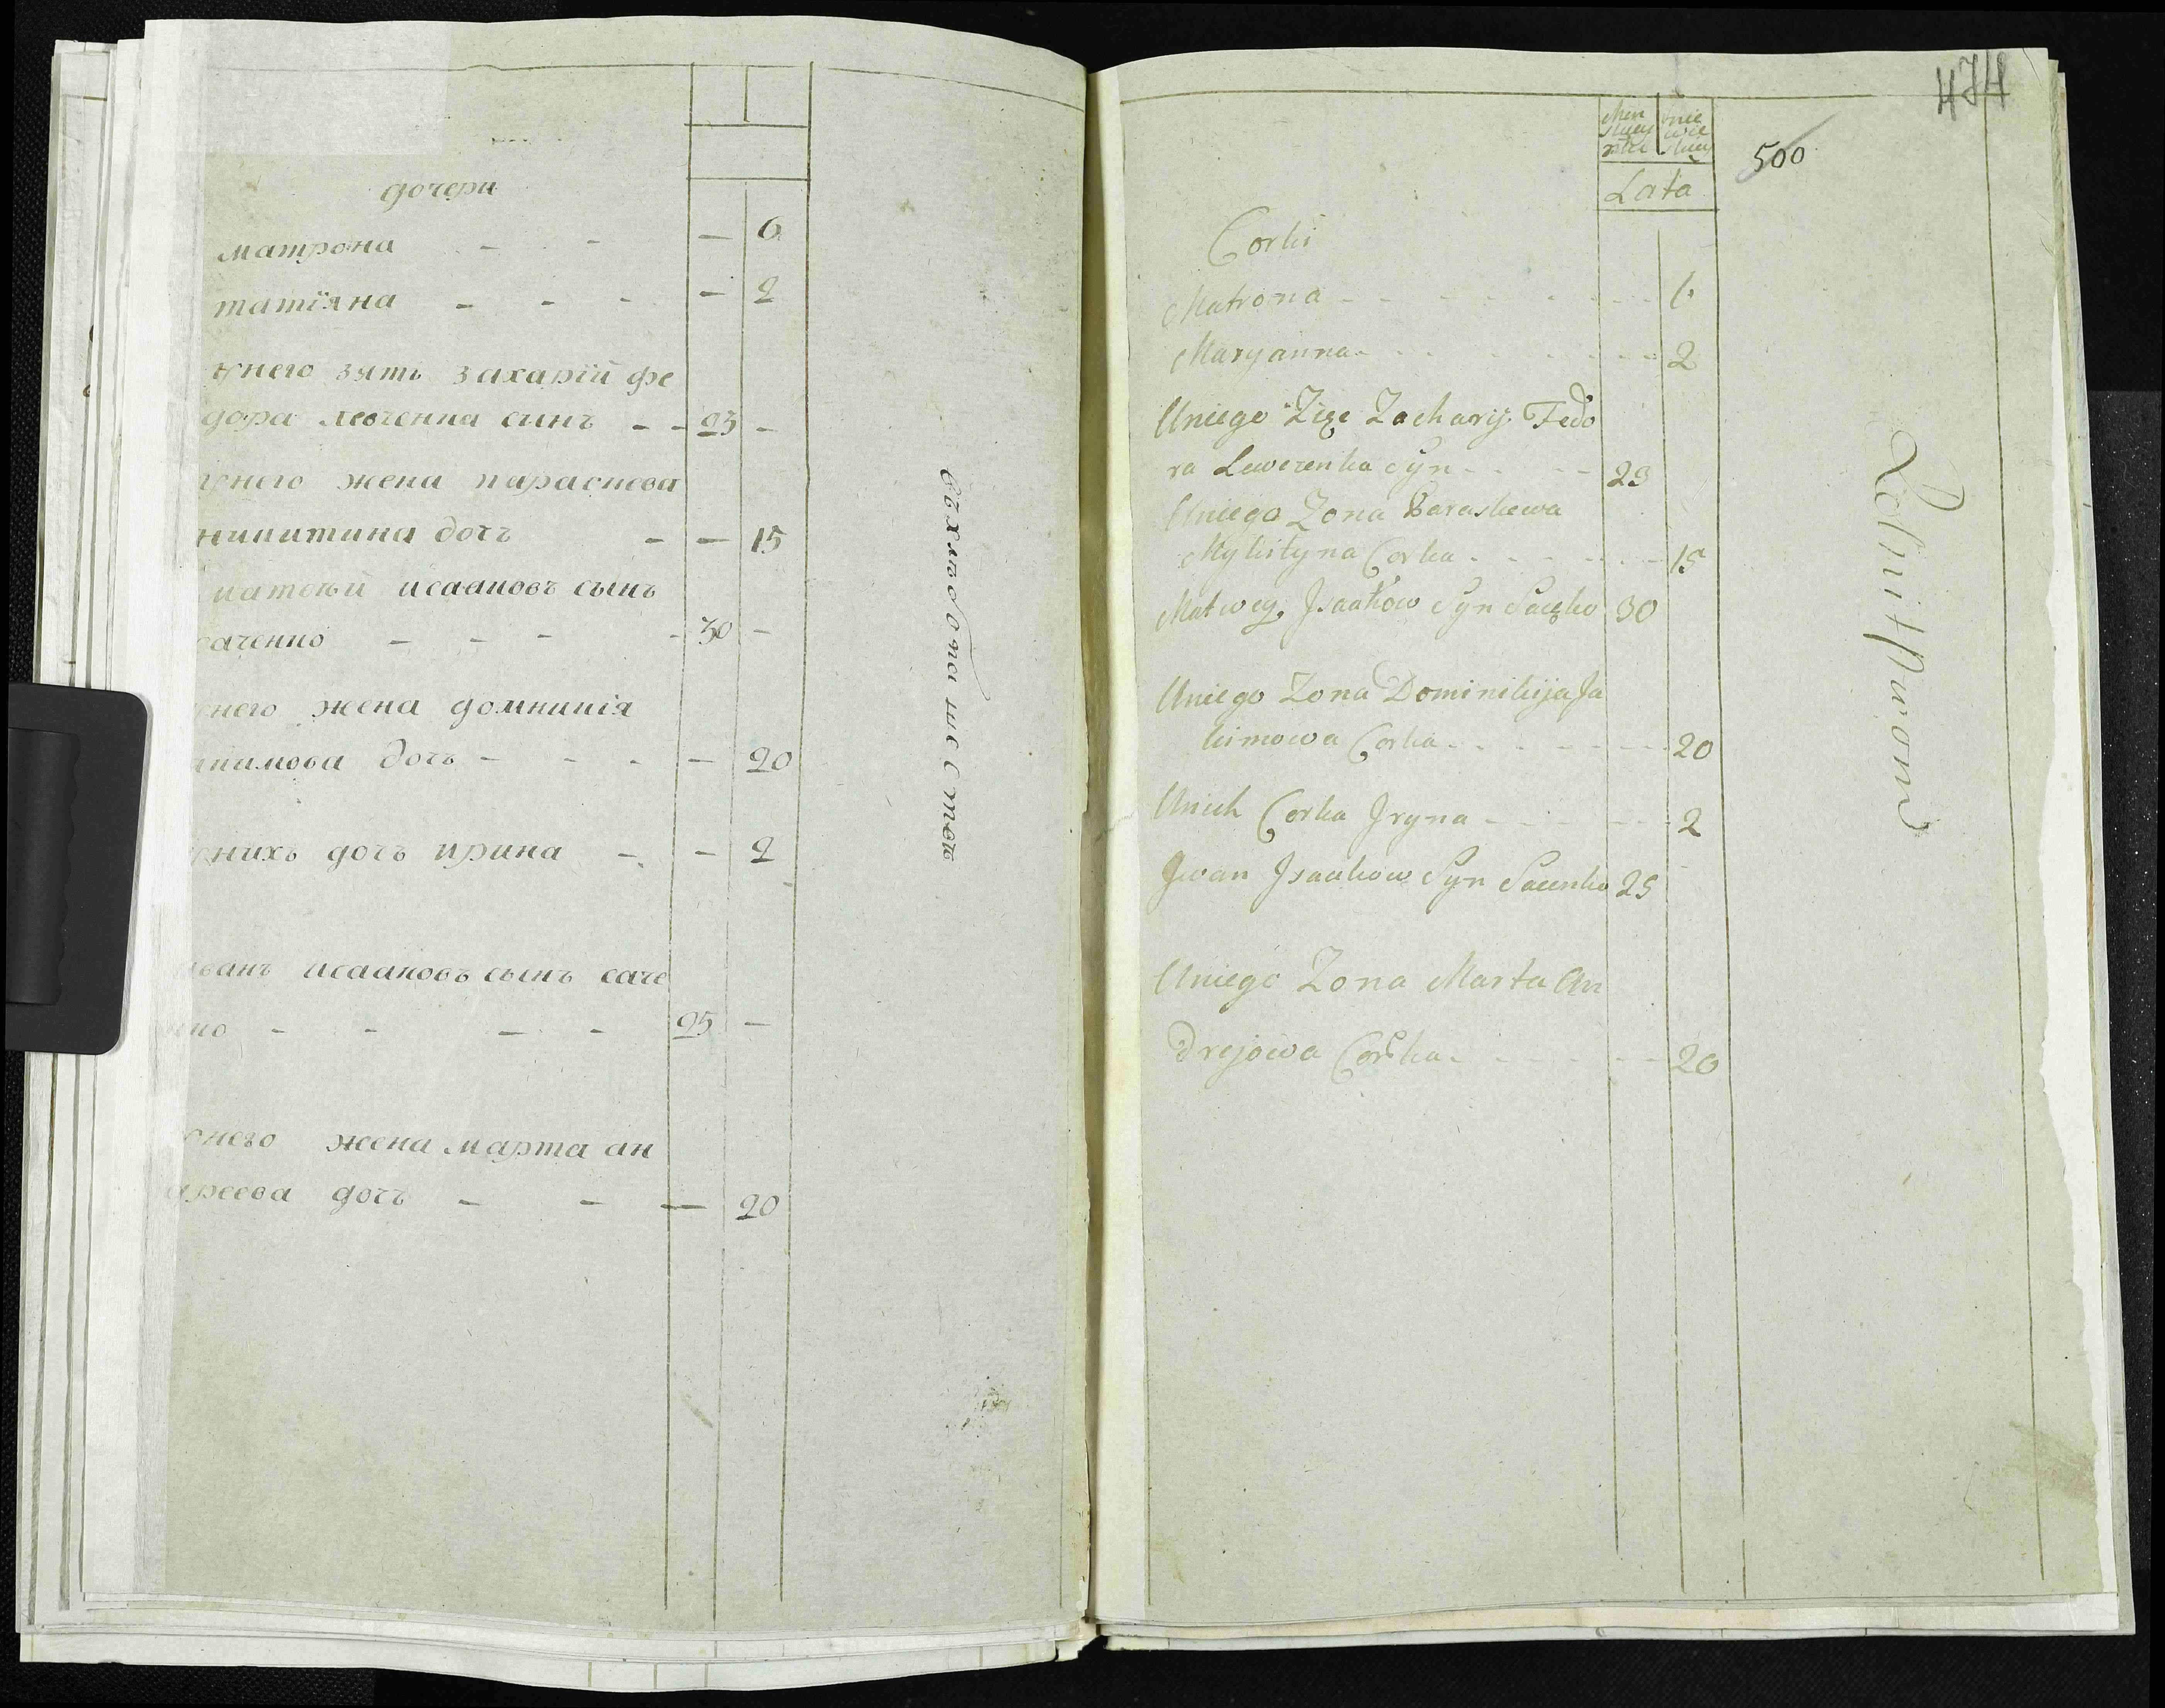 дочери
матрона - - - 6
татїяна - - - - 2
унего зять захарїй фе
дора левченка синъ - - 25 -
унего жена параскева
никитина дочъ - - 15
матвѣй исааковъ сынъ
саченко - - - - 30 -
унего жена домникія
якимова дочъ - - - - 20
унихъ дочъ ирина - - 2
иванъ исааковъ сынъ саче
нко - - - - 25 -
унего жена марта ан
дреева дочъ - - — 20
въ хлѣбопашествѣ
474
500
Męn
skiey
płci
nie
wie
skiey
Lata
Corki
Matrona - - - - - - - 6
Maryanna - - - - - - - 2
Uniego Zięc Zacharij Fedo
ra Lewczenka Syn - - - - 25
Uniego Zona Paraskewa
Mykityna Corka - - - - - - 15
Matwey Jsaakow Syn Saczko 30
Uniego Zona Dominikija Ja
kimowa Corka - - - - - - 20
Unich Corka Jryna - - - - - 2
Jwan Jsaakow Syn Sacenko 25
Uniego Zona Marta An
drejowa Corka - - - - - - 20